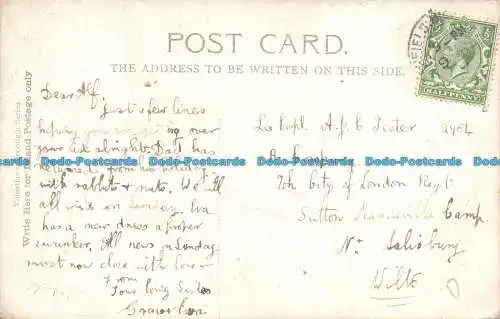 POST CARD.
THE ADDRESS TO BE WRITTEN ON THIS SIDE.
Valentines Series
Write Here for Inland Postage only
HALFPENNY
Dear Alf,
Just a few lines
hoping you are getting over
your alright. Dad has
from his holiday
with rabbit & nuts. We'll
all on Sunday. Eva
has a new dress a proper
swanker. All news on Sunday
must now close with love
From
Your loving Sister
Grace & Eva
A. Coy
7th City of London Regt
Sutton Mandeville Camp
Nr Salisbury
Wilts
Dodo-Postcards Dodo-Postcards Dodo-Postcards Dodo-Postcards Dodo-Postcards Dodo-Postcards